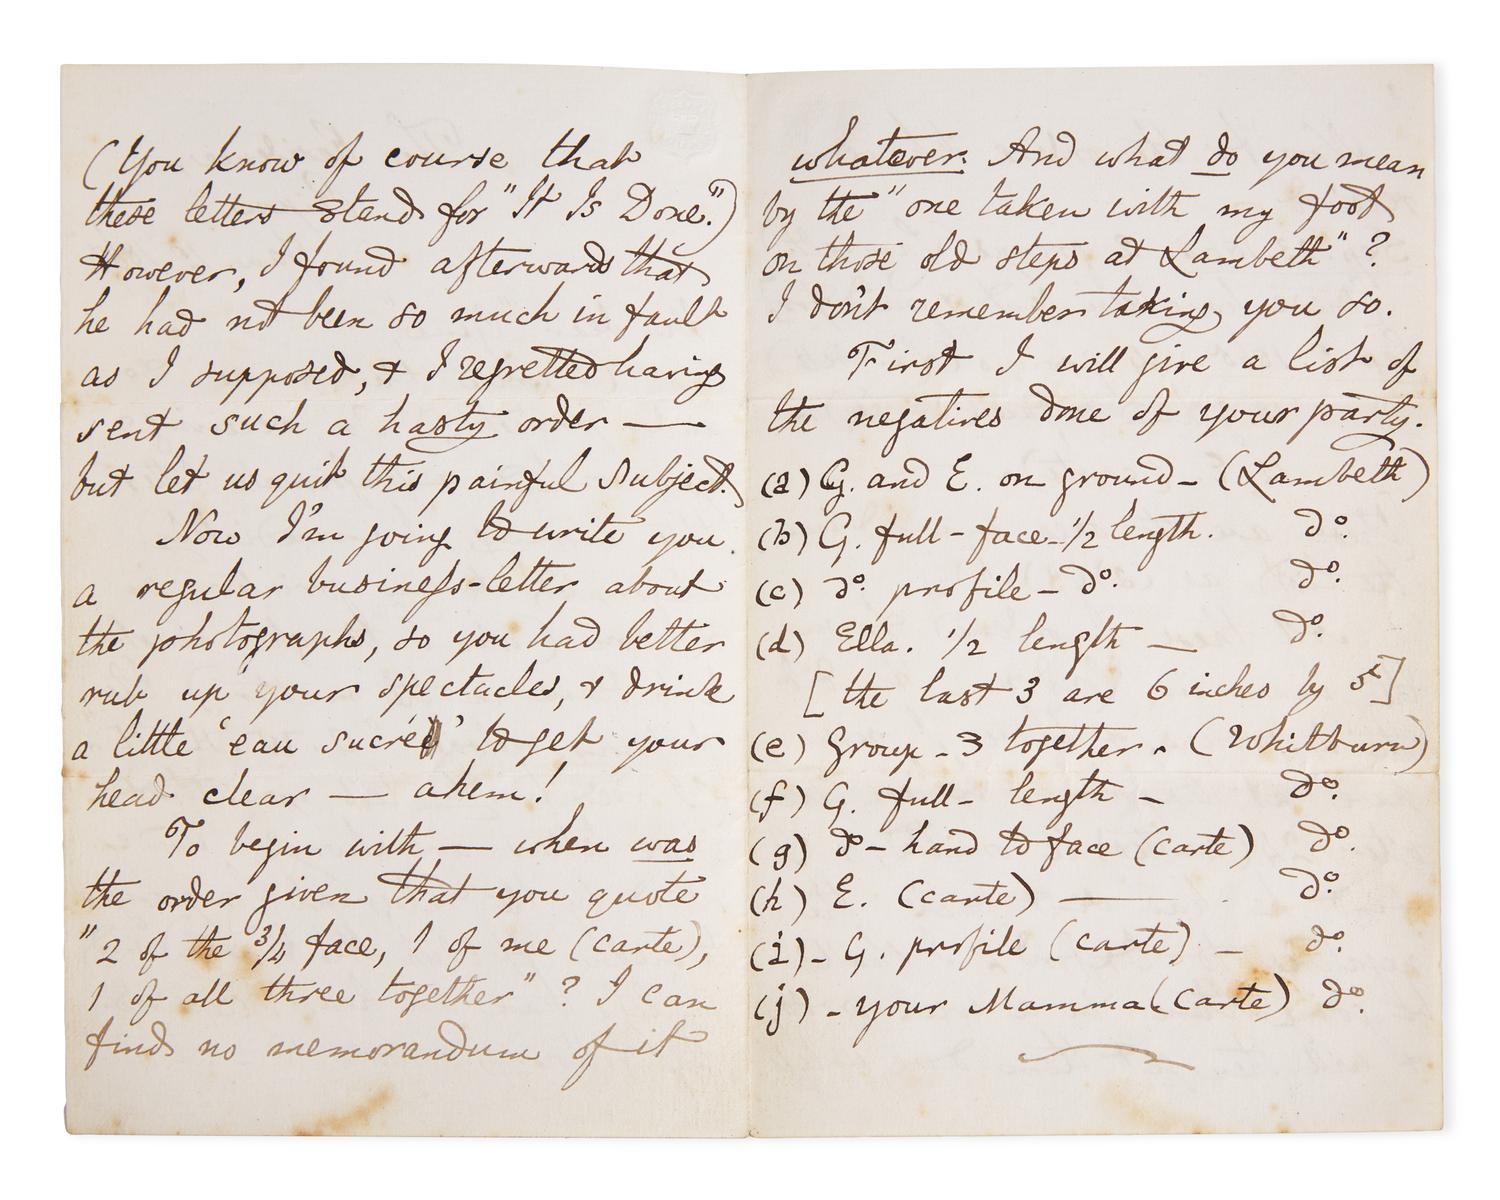 (You know of course that
these letters stand for "It Is Done.")
However, I found afterwards that
he had not been so much in fault
as I supposed, & I regretted having
sent such a hasty order —
but let us quit this painful subject.
Now I'm going to write you
a regular business-letter about
the photographs, so you had better
rub up your spectacles, & drink
a little 'eau sucrée' to get your
head clear — ahem!
To begin with — when was
the order given that you quote
"2 of the 3/4 face, 1 of me (carte),
1 of all three together" ? I can
find no memorandum of it
whatever. And what do you mean
by the "one taken with my foot
on those old steps at Lambeth" ?
I don't remember taking you so.
First I will give a list of
the negatives done of your party.
(a) G. and E. on ground - (Lambeth)
(b) G. full-face-1/2 length. do.
(c) do. profile - do. do.
(d) Ella. 1/2 length — do.
[the last 3 are 6 inches by 5]
(e) group - 3 together - (Whitburn)
(f) G. full-length - do.
(g) do - hand to face (carte) do.
(h) E. (carte) — do.
(i) - G. profile (carte) - do.
(j) - your Mamma (carte) do.